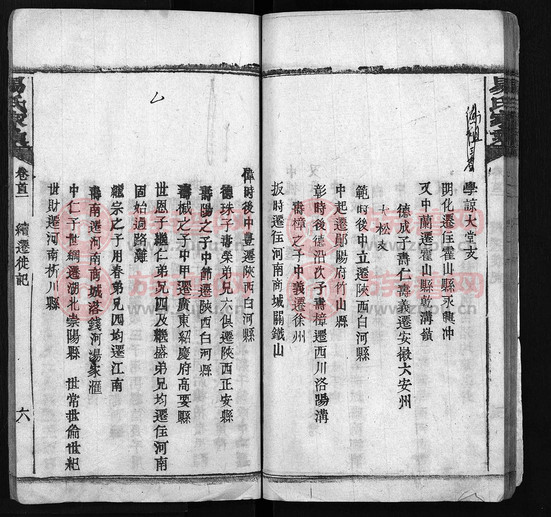 學諒大堂支
開化遷往霍山縣永興冲
又中蘭遷霍山縣乾溝嶺
德成子壽仁壽義遷安徽六安州
大松支
範時後中立遷陝西白河縣
中起遷鄖陽府竹山縣
彰時後德沿次子壽樟遷西川洛陽溝
壽樟之子中義遷徐州
扳時遷往河南商城關鐵山
偉時後中豊遷陝西白河縣
德珠子壽榮弟兄六俱遷陝西正安縣
壽陽之子中錦遷陝西白河縣
壽城之子中甲遷廣東紹慶府高要縣
世恩子繼仁弟兄四及繼盛弟兄均遷往河南
固始過路灘
繼宗之子用春弟兄四均遷江南
壽南遷河南商城落錢河湯家滙
中仁子世綱遷湖北崇陽縣 世常世倫世紀
世財遷河南析川縣
易氏家
卷首一 續遷徙記 六